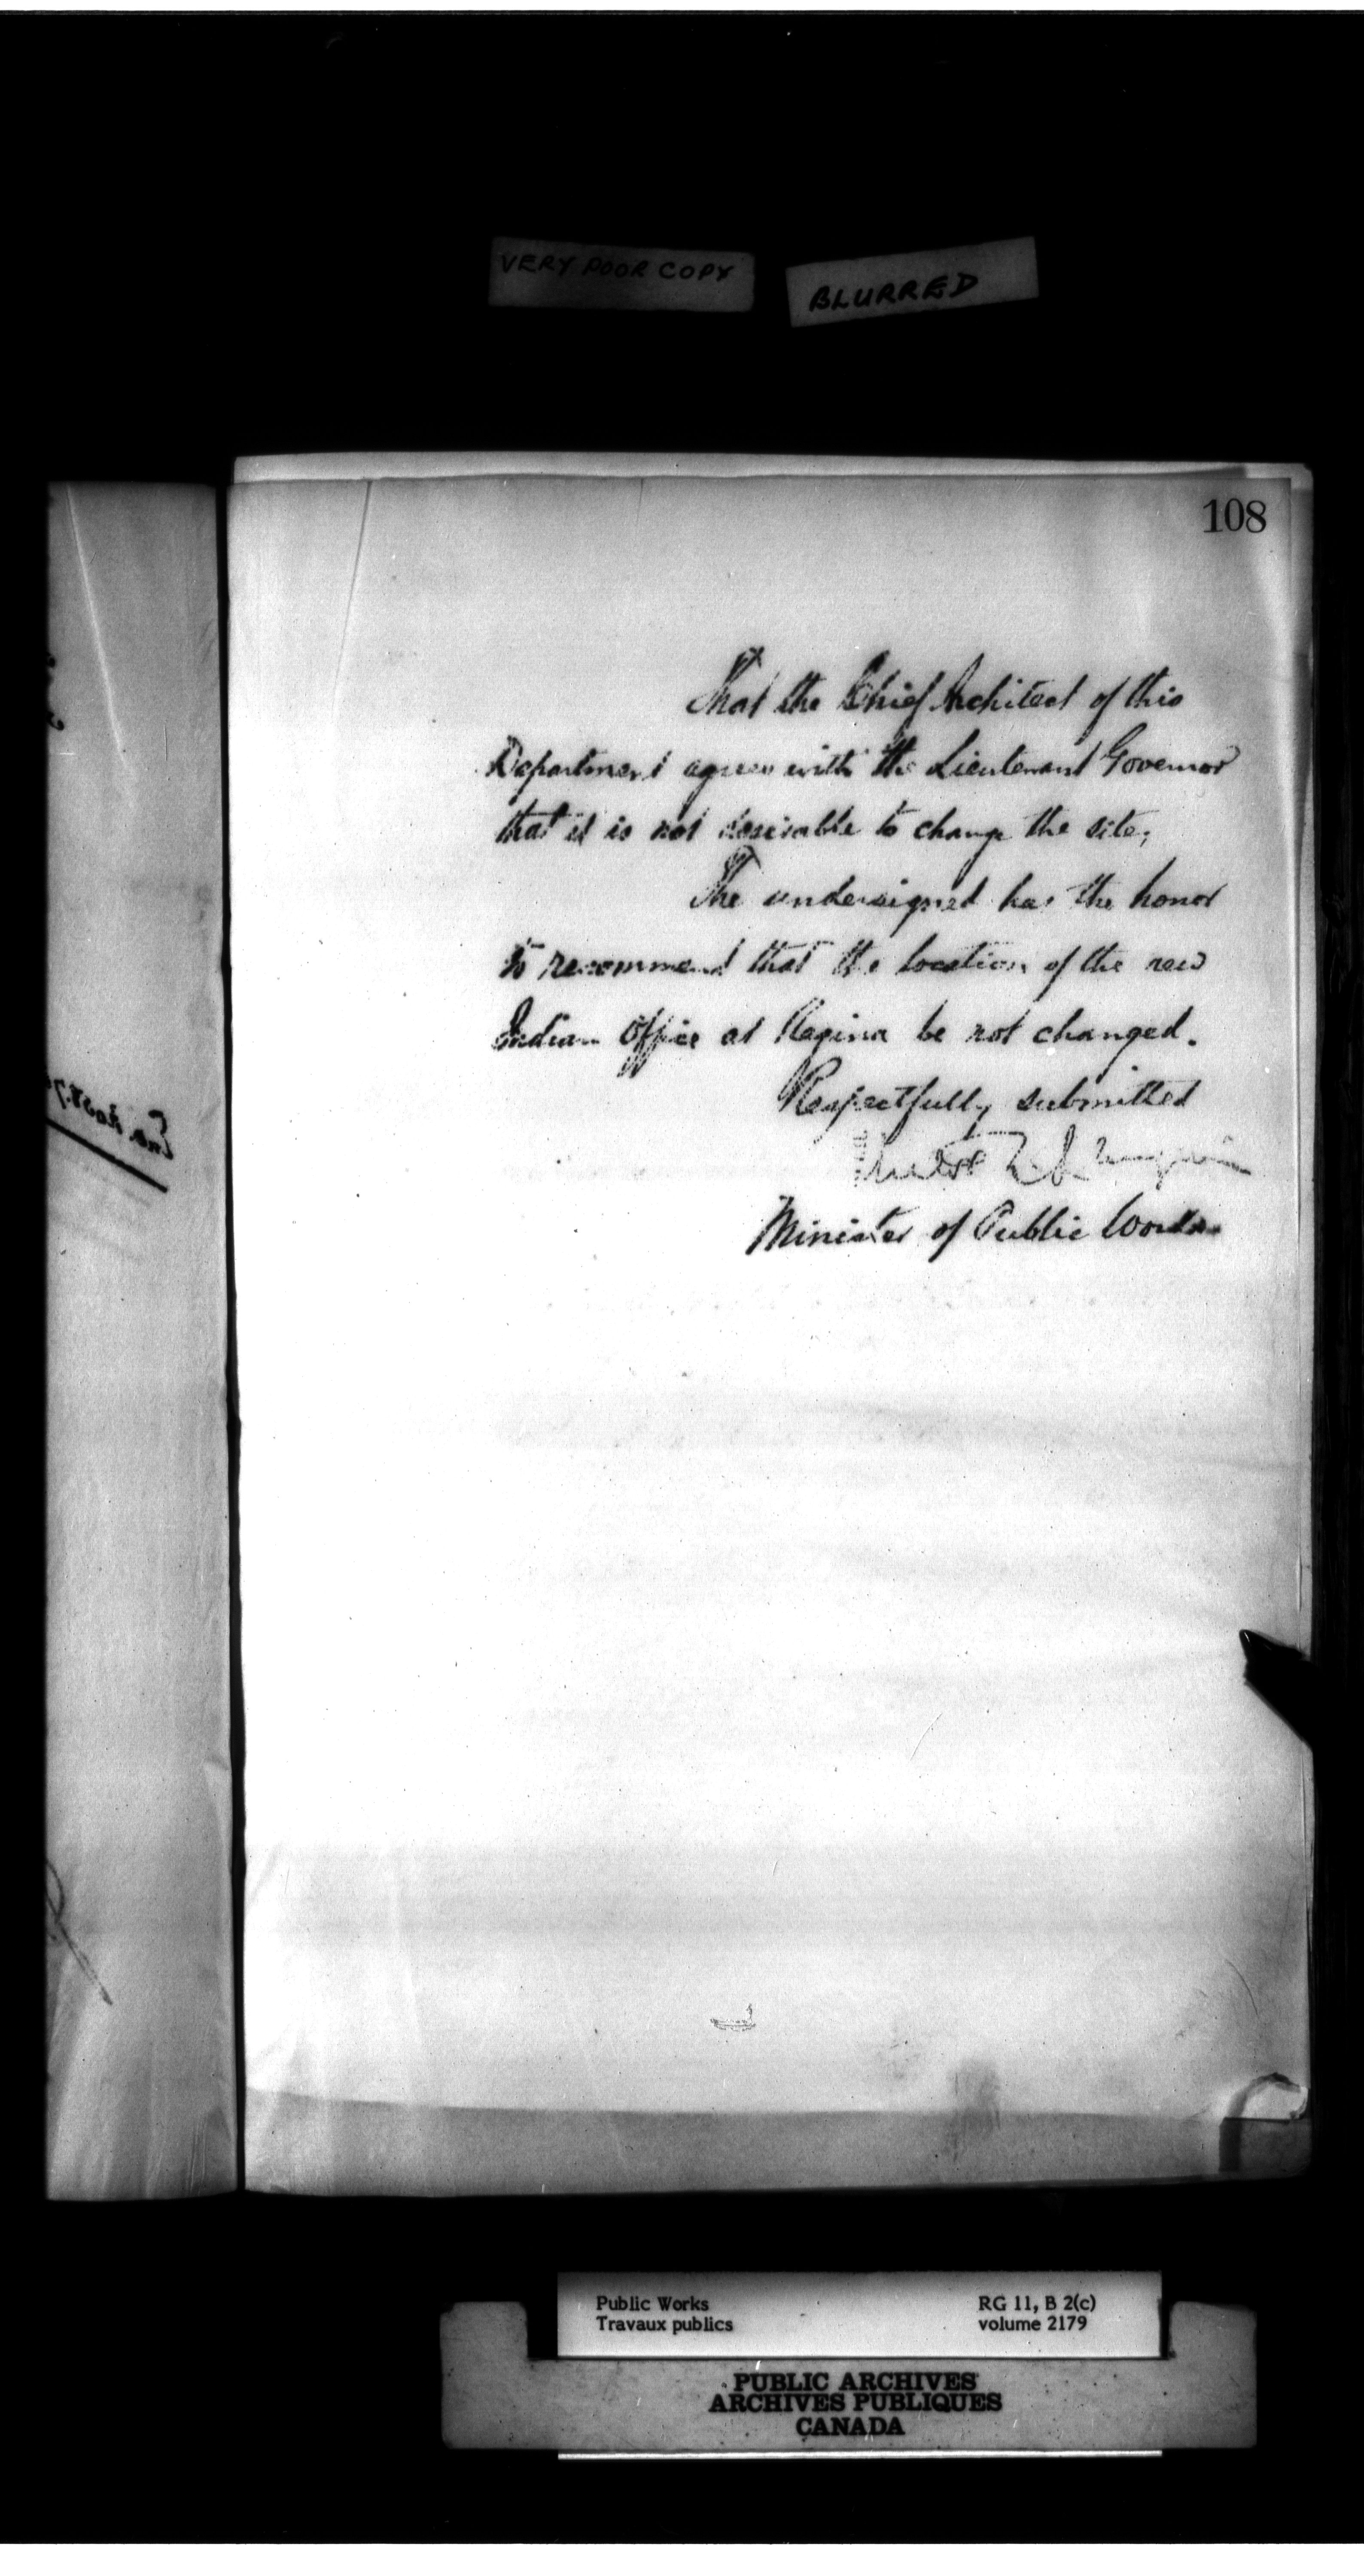 VERY POOR COPY
BLURRED
108
That the Chief Architect of this
Department agrees with the Lieutenant Governor
that it is not desirable to change the site;
The undersigned has the honor
to recommend that the location of the new
Indian Office at Regina be not changed.
Respectfully submitted
Minister of Public Works
Public Works
Travaux publics
RG 11, B 2(c)
volume 2179
PUBLIC ARCHIVES
ARCHIVES PUBLIQUES
CANADA